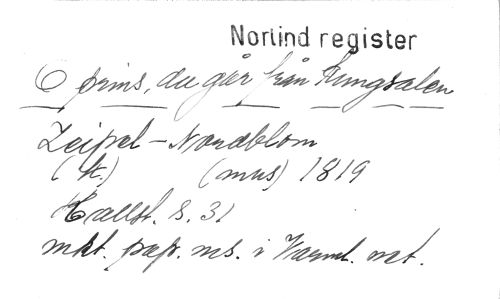 Norlind register
O prins, du går från Kungsalen
Zeipel - Nordblom
(t.) (mus) 1819
s. 31
mkt. pap. ms. i Värml. nat.